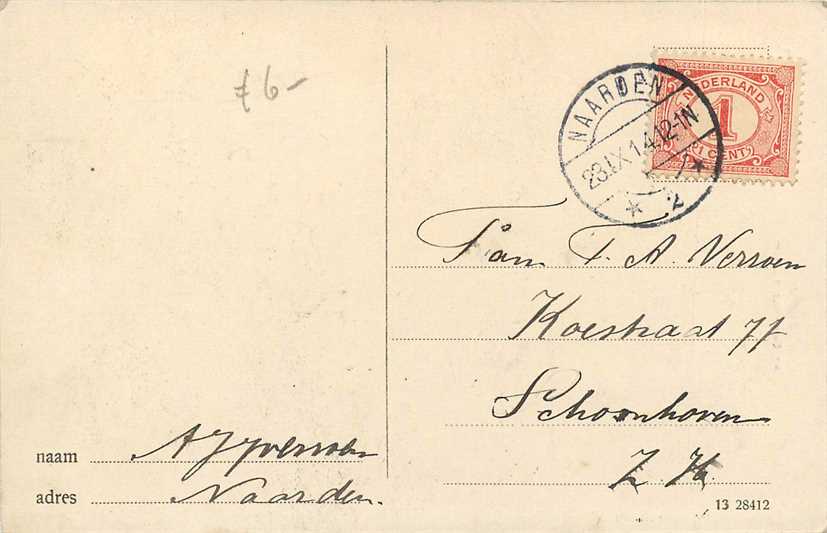 f 6-
NAARDEN
28.IX.14.12-1N
* 2 *
NEDERLAND
1
1 CENT
Fam. T. A. Verroen
Koestraat 77
Schoonhoven
Z. H.
naam
adres Naarden.
13 28412